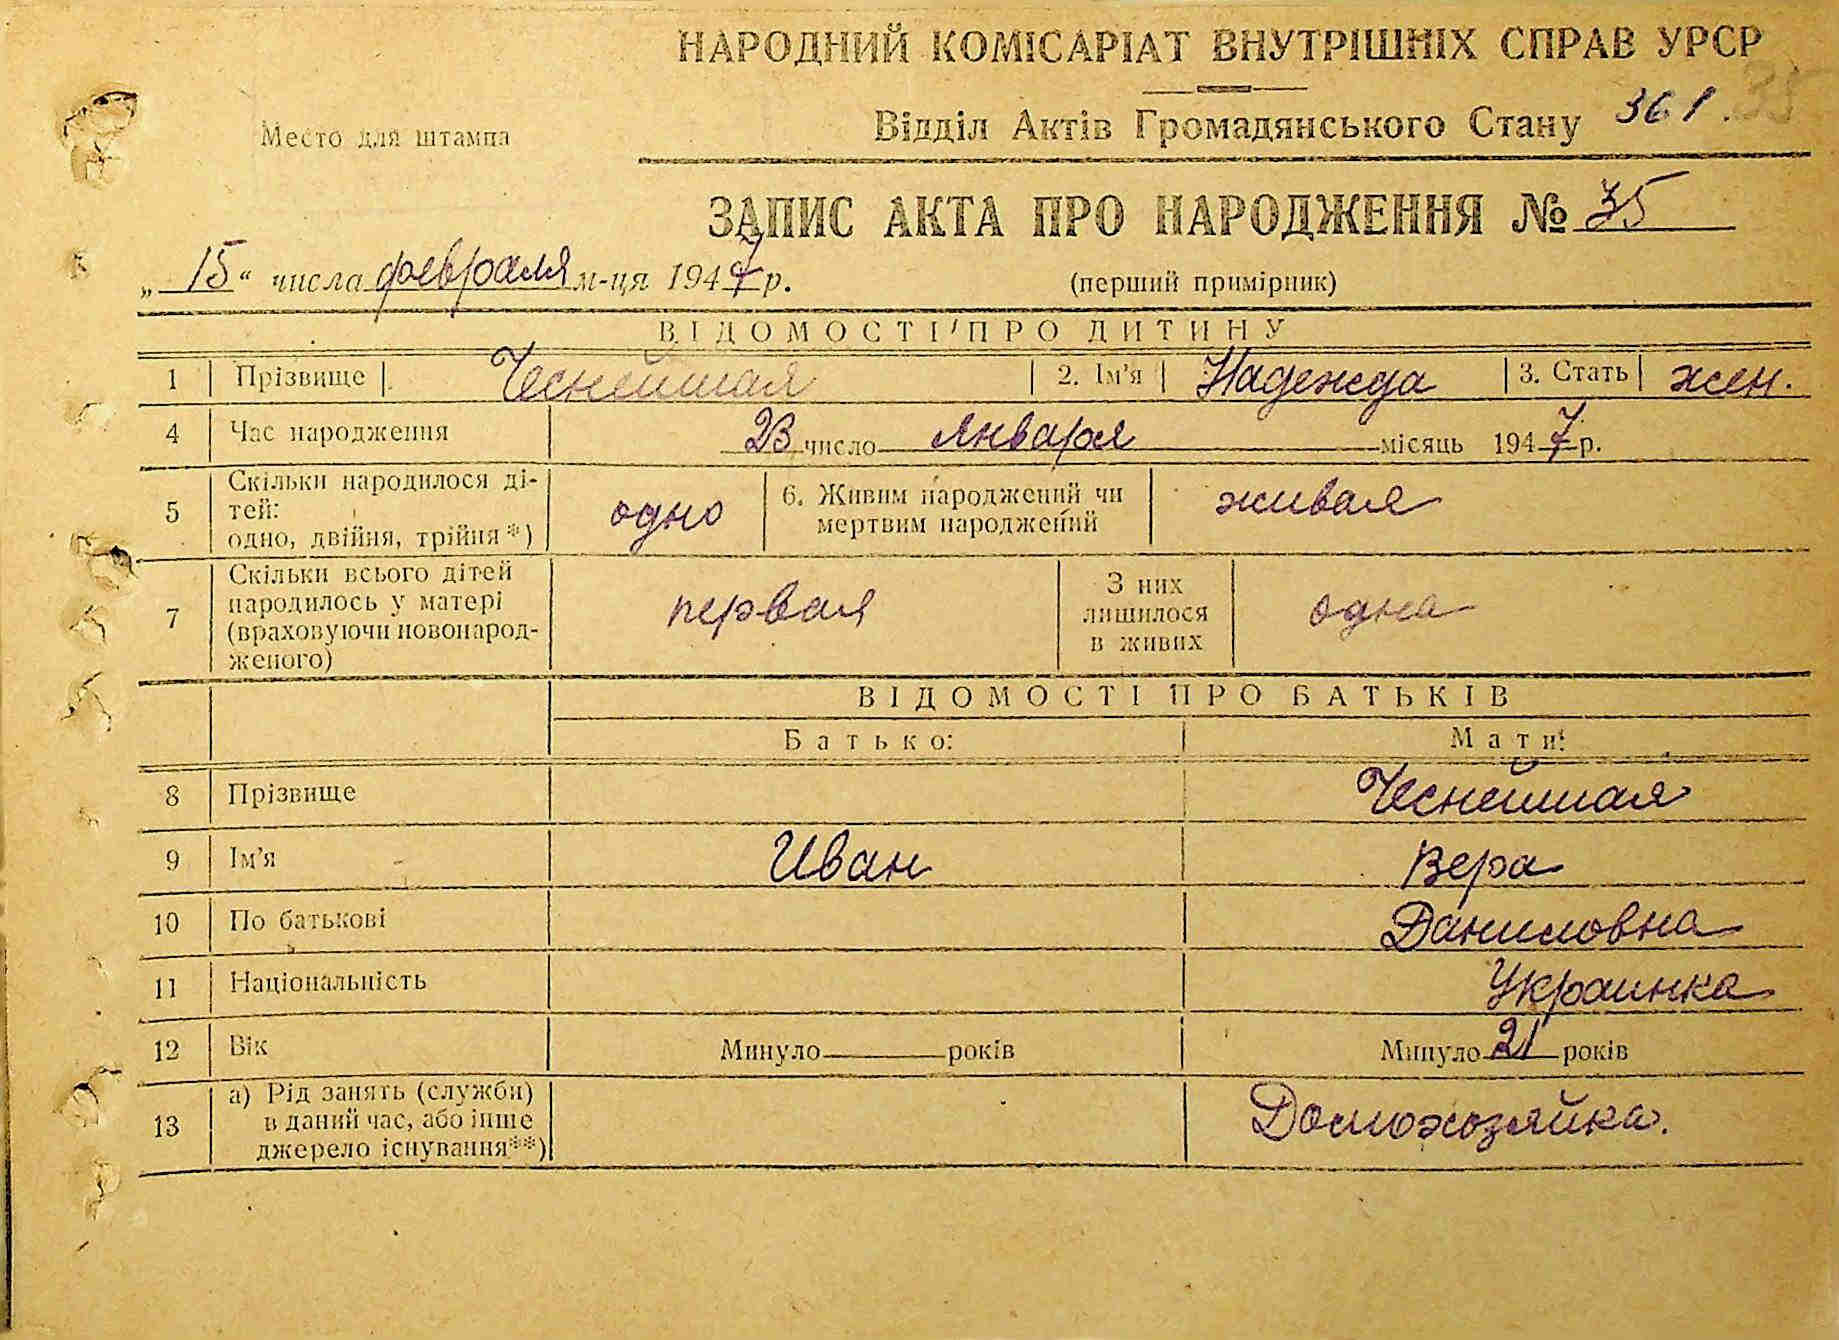 НАРОДНИЙ КОМІСАРІАТ ВНУТРІШНІХ СПРАВ УРСР
Место для штампа
Відділ Актів Громадянського Стану 361.
ЗАПИС АКТА ПРО НАРОДЖЕННЯ № 35
„15“ числа февраля м-ця 1947 р. (перший примірник)
ВІДОМОСТІ ПРО ДИТИНУ
1 Прізвище Чеснейшая 2. Ім'я Надежда 3. Стать жен.
4 Час народження 23 число января місяць 1947 р.
5 Скільки народилося ді-
тей:
одно, двійня, трійня*) одно 6. Живим народжений чи
мертвим народжений живая
7 Скільки всього дітей
народилось у матері
(враховуючи новонарод-
женого) первая З них
лишилося
в живих одна
ВІДОМОСТІ ПРО БАТЬКІВ
Батько: Мати:
8 Прізвище Чеснейшая
9 Ім'я Иван Вера
10 По батькові Даниловна
11 Національність Украинка
12 Вік Минуло років Минуло 21 років
13 а) Рід занять (служби)
в даний час, або інше
джерело існування**) Домохозяйка.